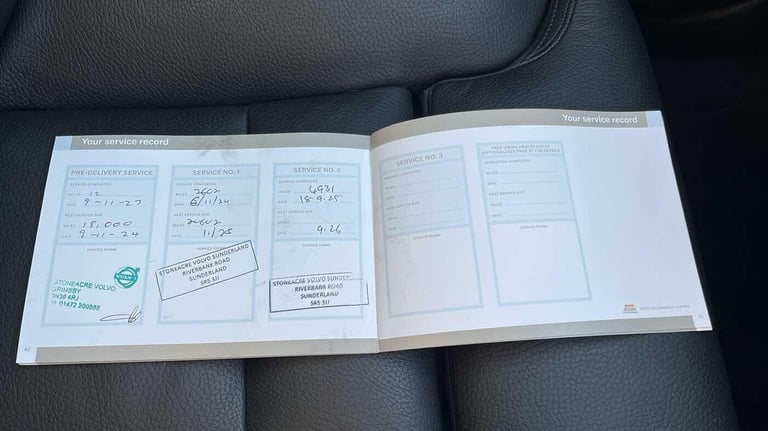 Your service record
PRE-DELIVERY SERVICE
SERVICE COMPLETED
MILES 12
DATE 9-11-23
NEXT SERVICE DUE
MILES 18,000
DATE 9-11-24
SERVICE STAMP
STONEACRE VOLVO
GRIMSBY
01472 200888
40
SERVICE NO. 1
SERVICE COMPLETED
MILES 2602
DATE 6/11/24
NEXT SERVICE DUE
MILES 20602
DATE 11/25
SERVICE STAMP
STONEACRE VOLVO SUNDERLAND
RIVERBANK ROAD
SUNDERLAND
SR5 3JJ
SERVICE NO. 2
SERVICE COMPLETED
MILES 4931
DATE 18.9.25
NEXT SERVICE DUE
MILES
DATE 9.26
SERVICE STAMP
STONEACRE VOLVO SUNDERLAND
RIVERBANK ROAD
SUNDERLAND
SR5 3JJ
Your service record
SERVICE NO. 3
SERVICE COMPLETED
MILES
DATE
NEXT SERVICE DUE
MILES
DATE
SERVICE STAMP
FREE VISUAL HEALTH CHECK
INSPECTION COMPLETED
MILES
DATE
NEXT SERVICE DUE
MILES
DATE
SERVICE STAMP